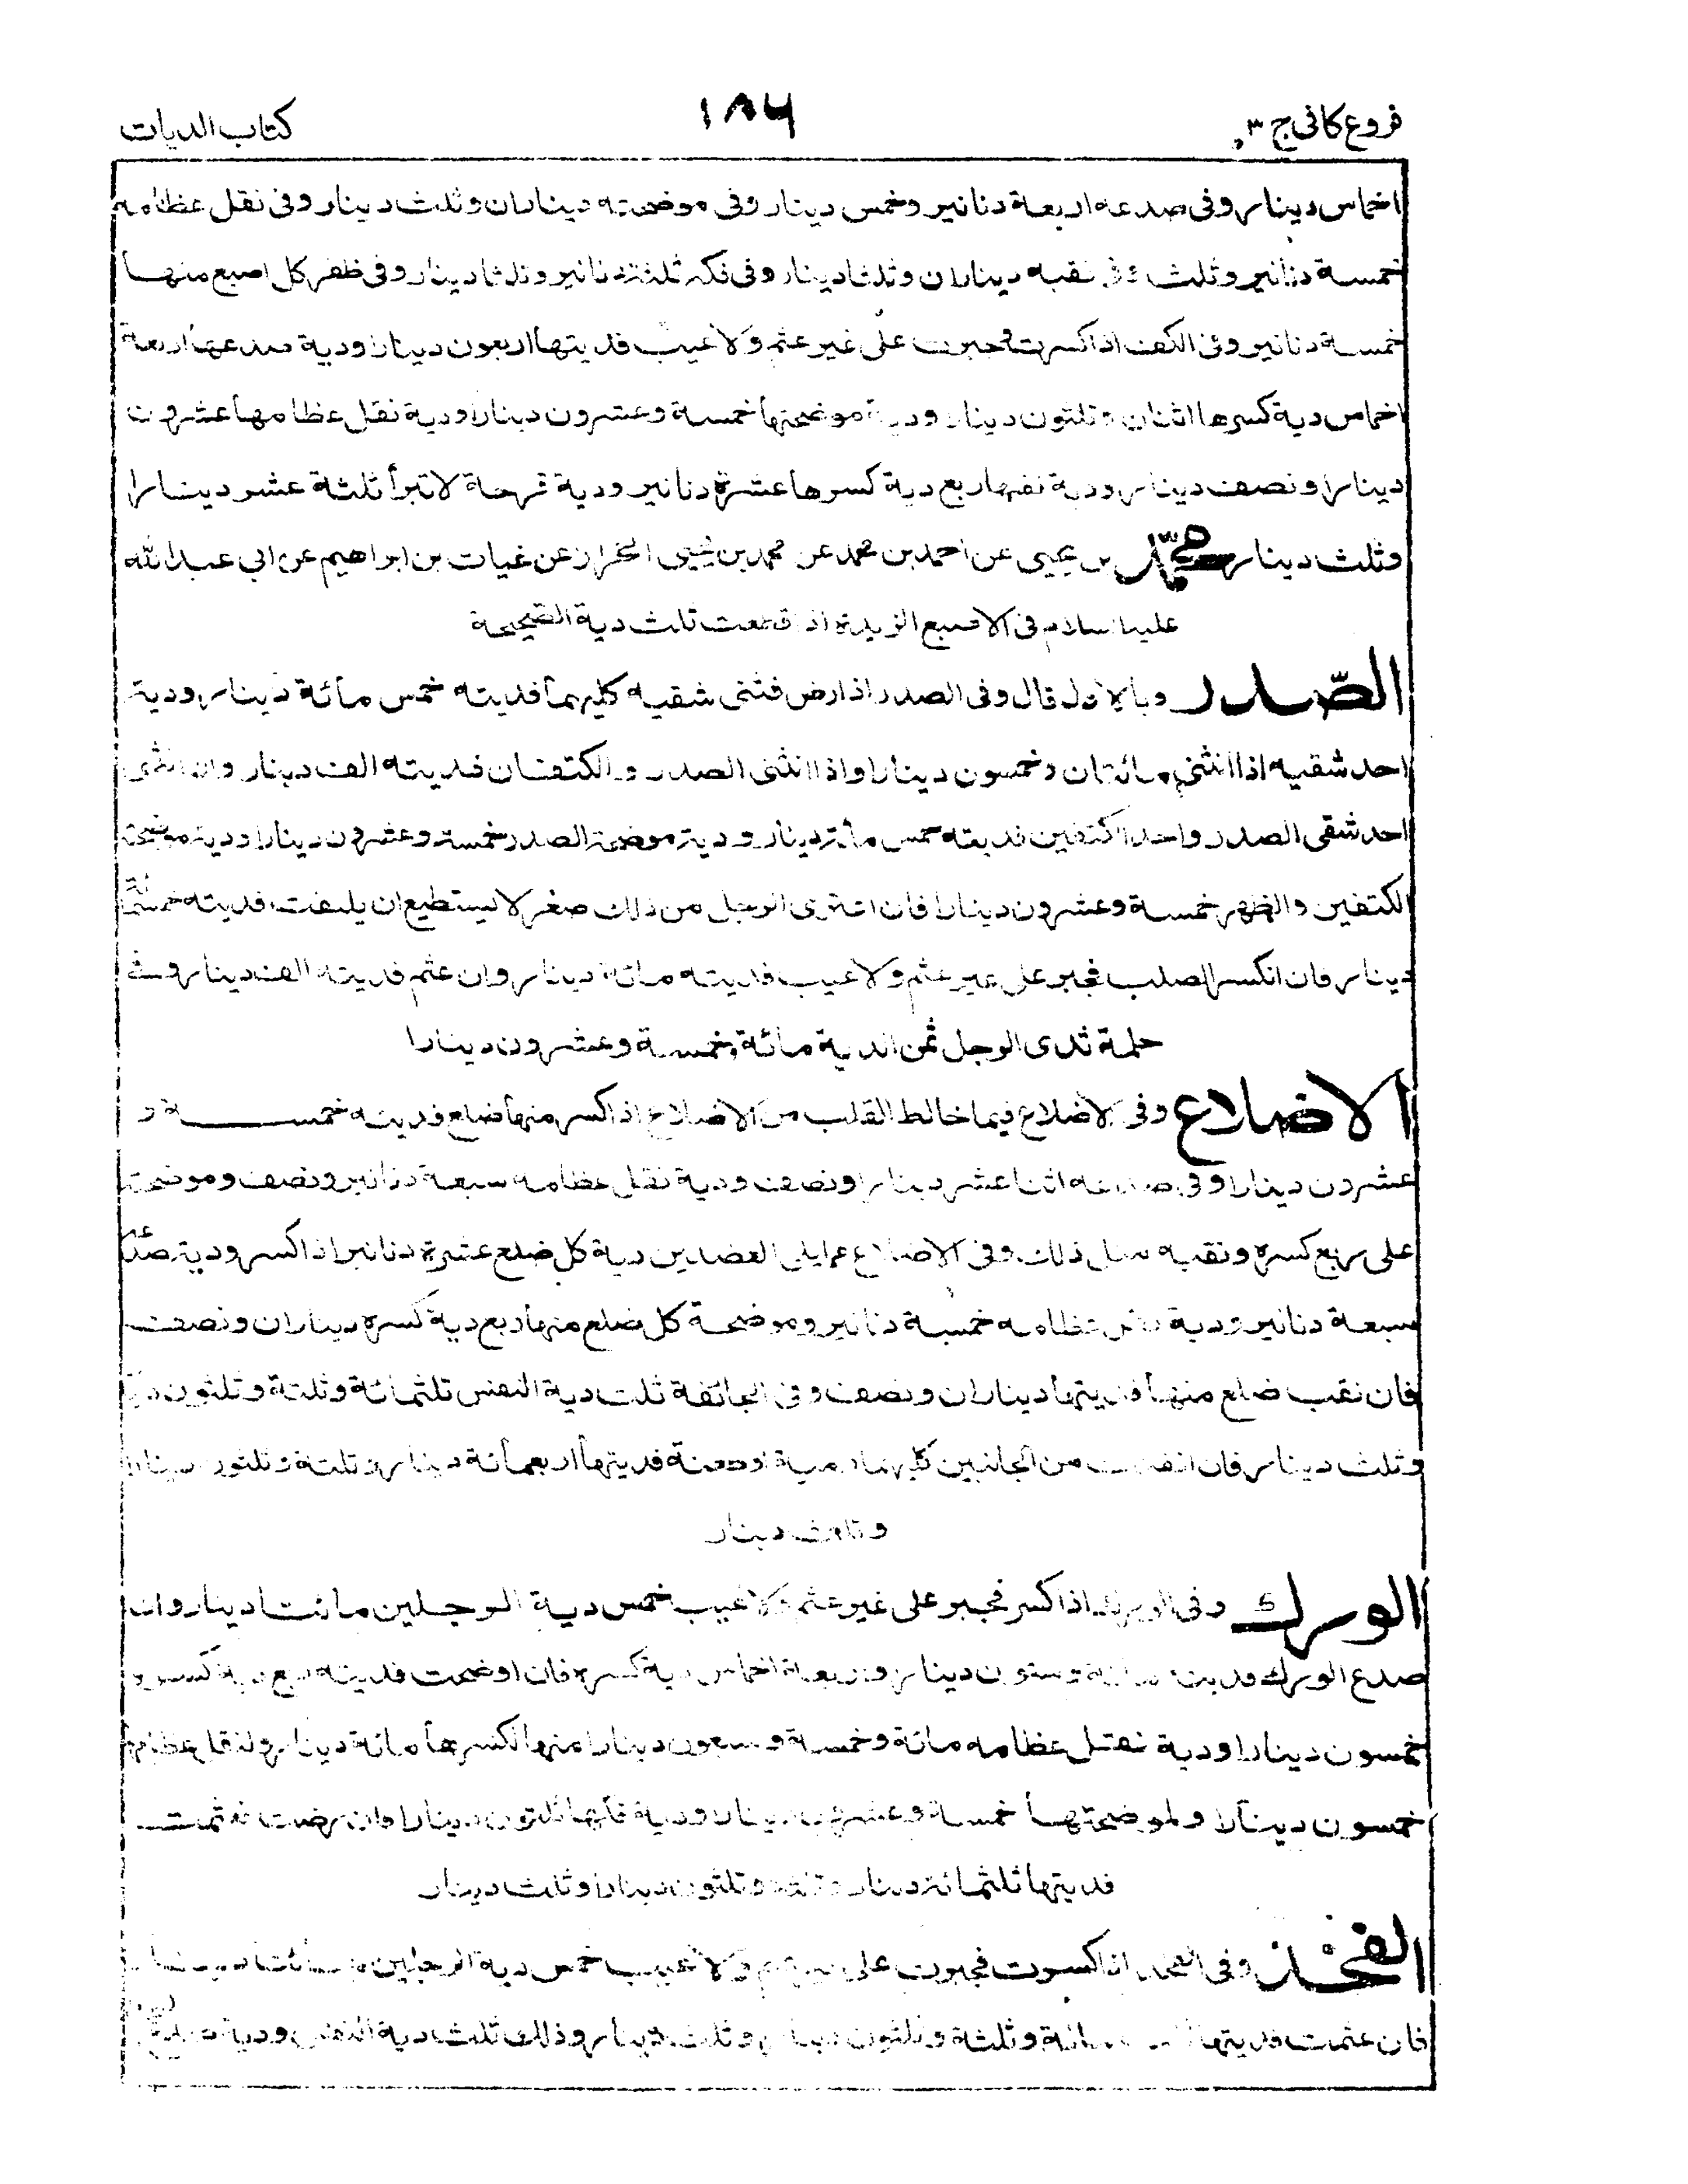 فروع كافى ج ٣
١٨٦
كتاب الديات
اخماس دينار وفى صدعه اربعة دنانير وخمس دينار وفى موضحته ديناران وثلث دينار وفى نقل عظامه
خمسة دنانير وثلث وفى نقبه ديناران وثلثا دينار وفى فكه ثلثة دنانير وثلثا دينار وفى ظفر كل اصبع منها
خمسة دنانير وفى الكف اذا كسرت فجبرت على غير عثم ولا عيب فديتها اربعون دينارا ودية صدعها اربعة
اخماس دية كسرها اثنان وثلثون دينارا ودية موضحتها خمسة وعشرون دينارا ودية نقل عظامها عشرون
دينارا ونصف دينار ودية نقبها ربع دية كسرها عشرة دنانير ودية قرحة لا تبرأ ثلثة عشر دينارا
وثلث دينار محمد بن يحيى عن احمد بن محمد عن محمد بن يحيى الخزاز عن غياث بن ابراهيم عن ابي عبد الله
عليه السلام فى الاصبع الزيدة اذا قطعت ثلث دية الصحيحة
الصدر وبالاول قال وفى الصدر اذا رض فثنى شقيه كليهما فديته خمس مائة دينار ودية
احد شقيه اذا انثنى مائتان وخمسون دينارا واذا انثنى الصدر والكتفان فديته الف دينار وان انثنى
احد شقى الصدر واحد الكتفين فديته خمس مائة دينار ودية موضحة الصدر خمسة وعشرون دينارا ودية موضحة
الكتفين والظهر خمسة وعشرون دينارا فان اعترى الرجل من ذلك صغر لا يستطيع ان يلتفت فديته خمسمائة
دينار وان انكسر الصلب فجبر على غير عثم ولا عيب فديته مائة دينار وان عثم فديته الف دينار وفى
حلمة ثدى الرجل ثمن الدية مائة وخمسة وعشرون دينارا
الاضلاع وفى الاضلاع فيما خالط القلب من الاضلاع اذا كسر منها ضلع فديته خمسة و
عشرون دينارا وفى صدعه اثنا عشر دينارا ونصف ودية نقل عظامه سبعة دنانير ونصف وموضحته
على ربع كسره ونقبه مثل ذلك وفى الاضلاع مما يلى العضدين دية كل ضلع عشرة دنانير اذا كسر ودية صدعه
سبعة دنانير ودية نقل عظامه خمسة دنانير وموضحة كل ضلع منها ربع دية كسره ديناران ونصف
فان نقب ضلع منها فديتها ديناران ونصف وفى الجائفة ثلث دية النفس ثلثمائة وثلثة وثلثون
وثلث دينار فان من الجانبين كليهما رمية او طعنة فديتها اربعمائة دينار وثلثة وثلثون دينارا
وثلث دينار
الورك وفى الورك اذا كسر فجبر على غير عثم ولا عيب خمس دية الرجلين مائتا دينار وان
صدع الورك فديته مائة وستون دينارا اربعة اخماس دية كسره فان اوضحت فديته ربع دية كسره
خمسون دينارا ودية نقل عظامه مائة وخمسة وسبعون دينارا منها لكسرها مائة دينار ولنقل عظامها
خمسون دينارا ولموضحتها خمسة وعشرون دينارا ودية فكها ثلثون دينارا فان رضت فعثمت
فديتها ثلثمائة دينار وثلثة وثلثون دينارا وثلث دينار
الفخذ وفى الفخذ اذا كسرت فجبرت على غير عثم ولا عيب خمس دية الرجلين مائتا دينار
فان عثمت فديتها وثلثة وثلثون دينارا وثلث دينار وذلك ثلث دية النفس ودية